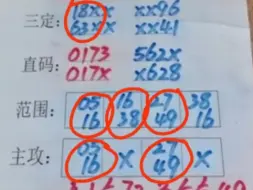 三定: 18xx xx96
63xx xx41
直码: 0173 562x
017x x628
范围: 05 16 27 38
16 38 49 16
主攻: 05 x 27 x
16 49